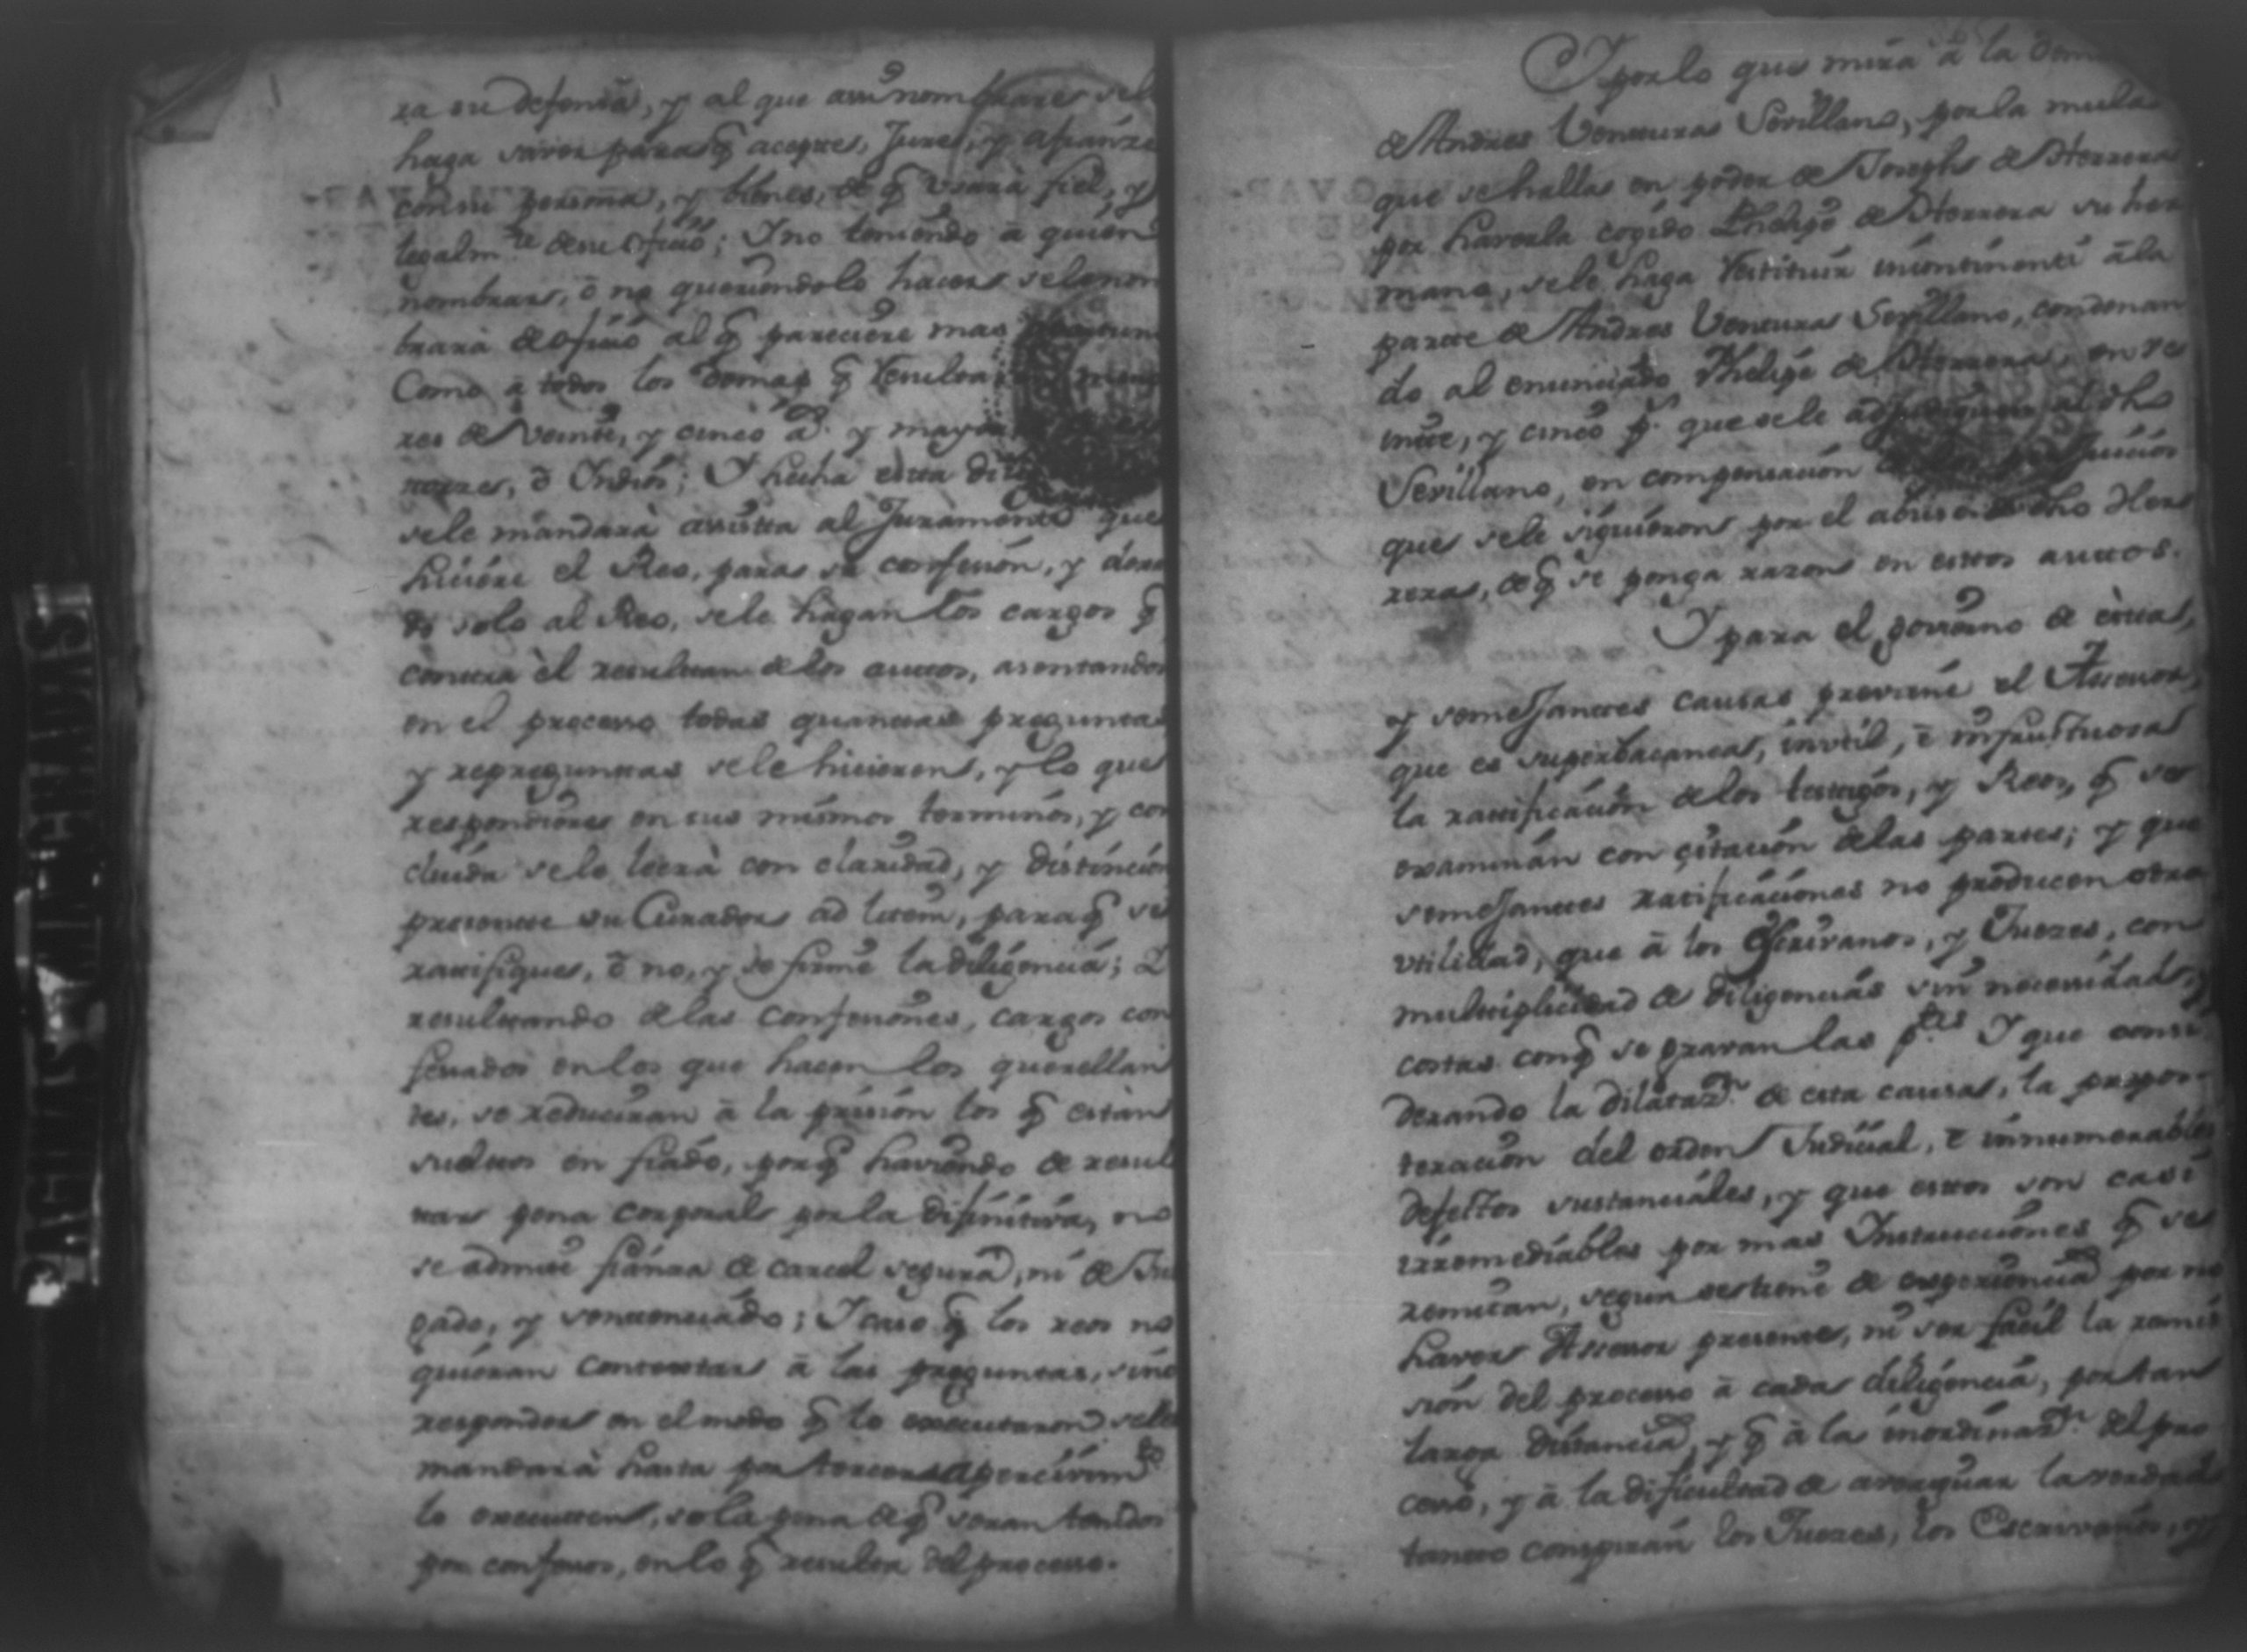 ra su defensa, y al que assi nombrare, sele
haga saver paraq̃ acepte, Jure, y afianze
con su persona, y bienes, de q̃ usará fiel, y
legalm.te de su oficio; Y no teniendo â quien
nombrar, ô no queriendolo hacer selenom
brará de oficio al q̃ pareciere mas
Como â todos los demas q̃ resultan
res de veinte, y cinco a.s y mayor
nores, ô Yndios; Y hecha esta dili
sele mandará assista al Juramento que
hiciere el Reo, para su confesion, y dexan
do solo al Reo, sele hagan los cargos q̃
contra èl resultan delos autos, asentando
en el processo todas quantas preguntas
y repreguntas sele hicieren, y lo que
respondiere en sus mismos terminos, y con
cluida sele leerá con claridad, y distincion
presente su Curador ad litem, paraq̃ se
ratifique, ô no, y se firme la diligencia; Y
resultando delas confesiones, cargos con
fesados en los que hacen los querellan
tes, se reduciran â la prision los q̃ están
sueltos en fiado, porq̃ haviendo de resul
tar pena corporal por la difinitiva, no
se admite fianza de carcel segura, ni de Juz
gado, y sentenciado; Y caso q̃ los reos no
quieran contestar â las preguntas, sino
responder en el modo q̃ lo executaron sele
mandará hasta por tercer apercivim.to
lo executen, so la pena de q̃ seran tenidos
por confesos, en lo q̃ resulta del processo.
Y por lo que mira â la dem
de Andres Ventura Sevillano, por la mula
que se halla en poder de Joseph de Herrera
por haverla cogido Phelipe de Herrera su her
mano, sele haga restituir incontinenti âla
parte de Andres Ventura Sevillano, condenan
do al enunciado Phelipe de Herrera, en ve
inte, y cinco p.s que sele adjudiquen al dho
Sevillano, en compensacion juicios
que sele siguieron por el abuso de dho Her
rera, de q̃ se ponga razon en estos autos.
Y para el govierno de èsta,
y semejantes causas previene el Assesor,
que es superbacanea, invtil, è infructuosa
la ratificacion delos testigos, y Reos, q̃ se
examinan con citacion delas partes; y que
semejantes ratificaciones no producen otra
vtilidad, que â los Escrivanos, y Juezes, con
multiplicidad de diligencias sin necessidad, y
costas conq̃ se gravan las p.tes Y que consi
derando la dilataz.n de esta causa, la prepos
teracion del orden Judicial, è innumerables
defectos sustanciales, y que estos son casi
irremediables por mas Instrucciones q̃ se
remitan, segun se tiene de experiencia por no
haver Assesor presente, ni ser facil la remis
sion del processo â cada diligencia, por tan
larga distancia, y q̃ â la inordinaz.n del pro
cesso, y â la dificultad de averiguar la verdad
tanto conspiran los Juezes, los Escrivanos, y